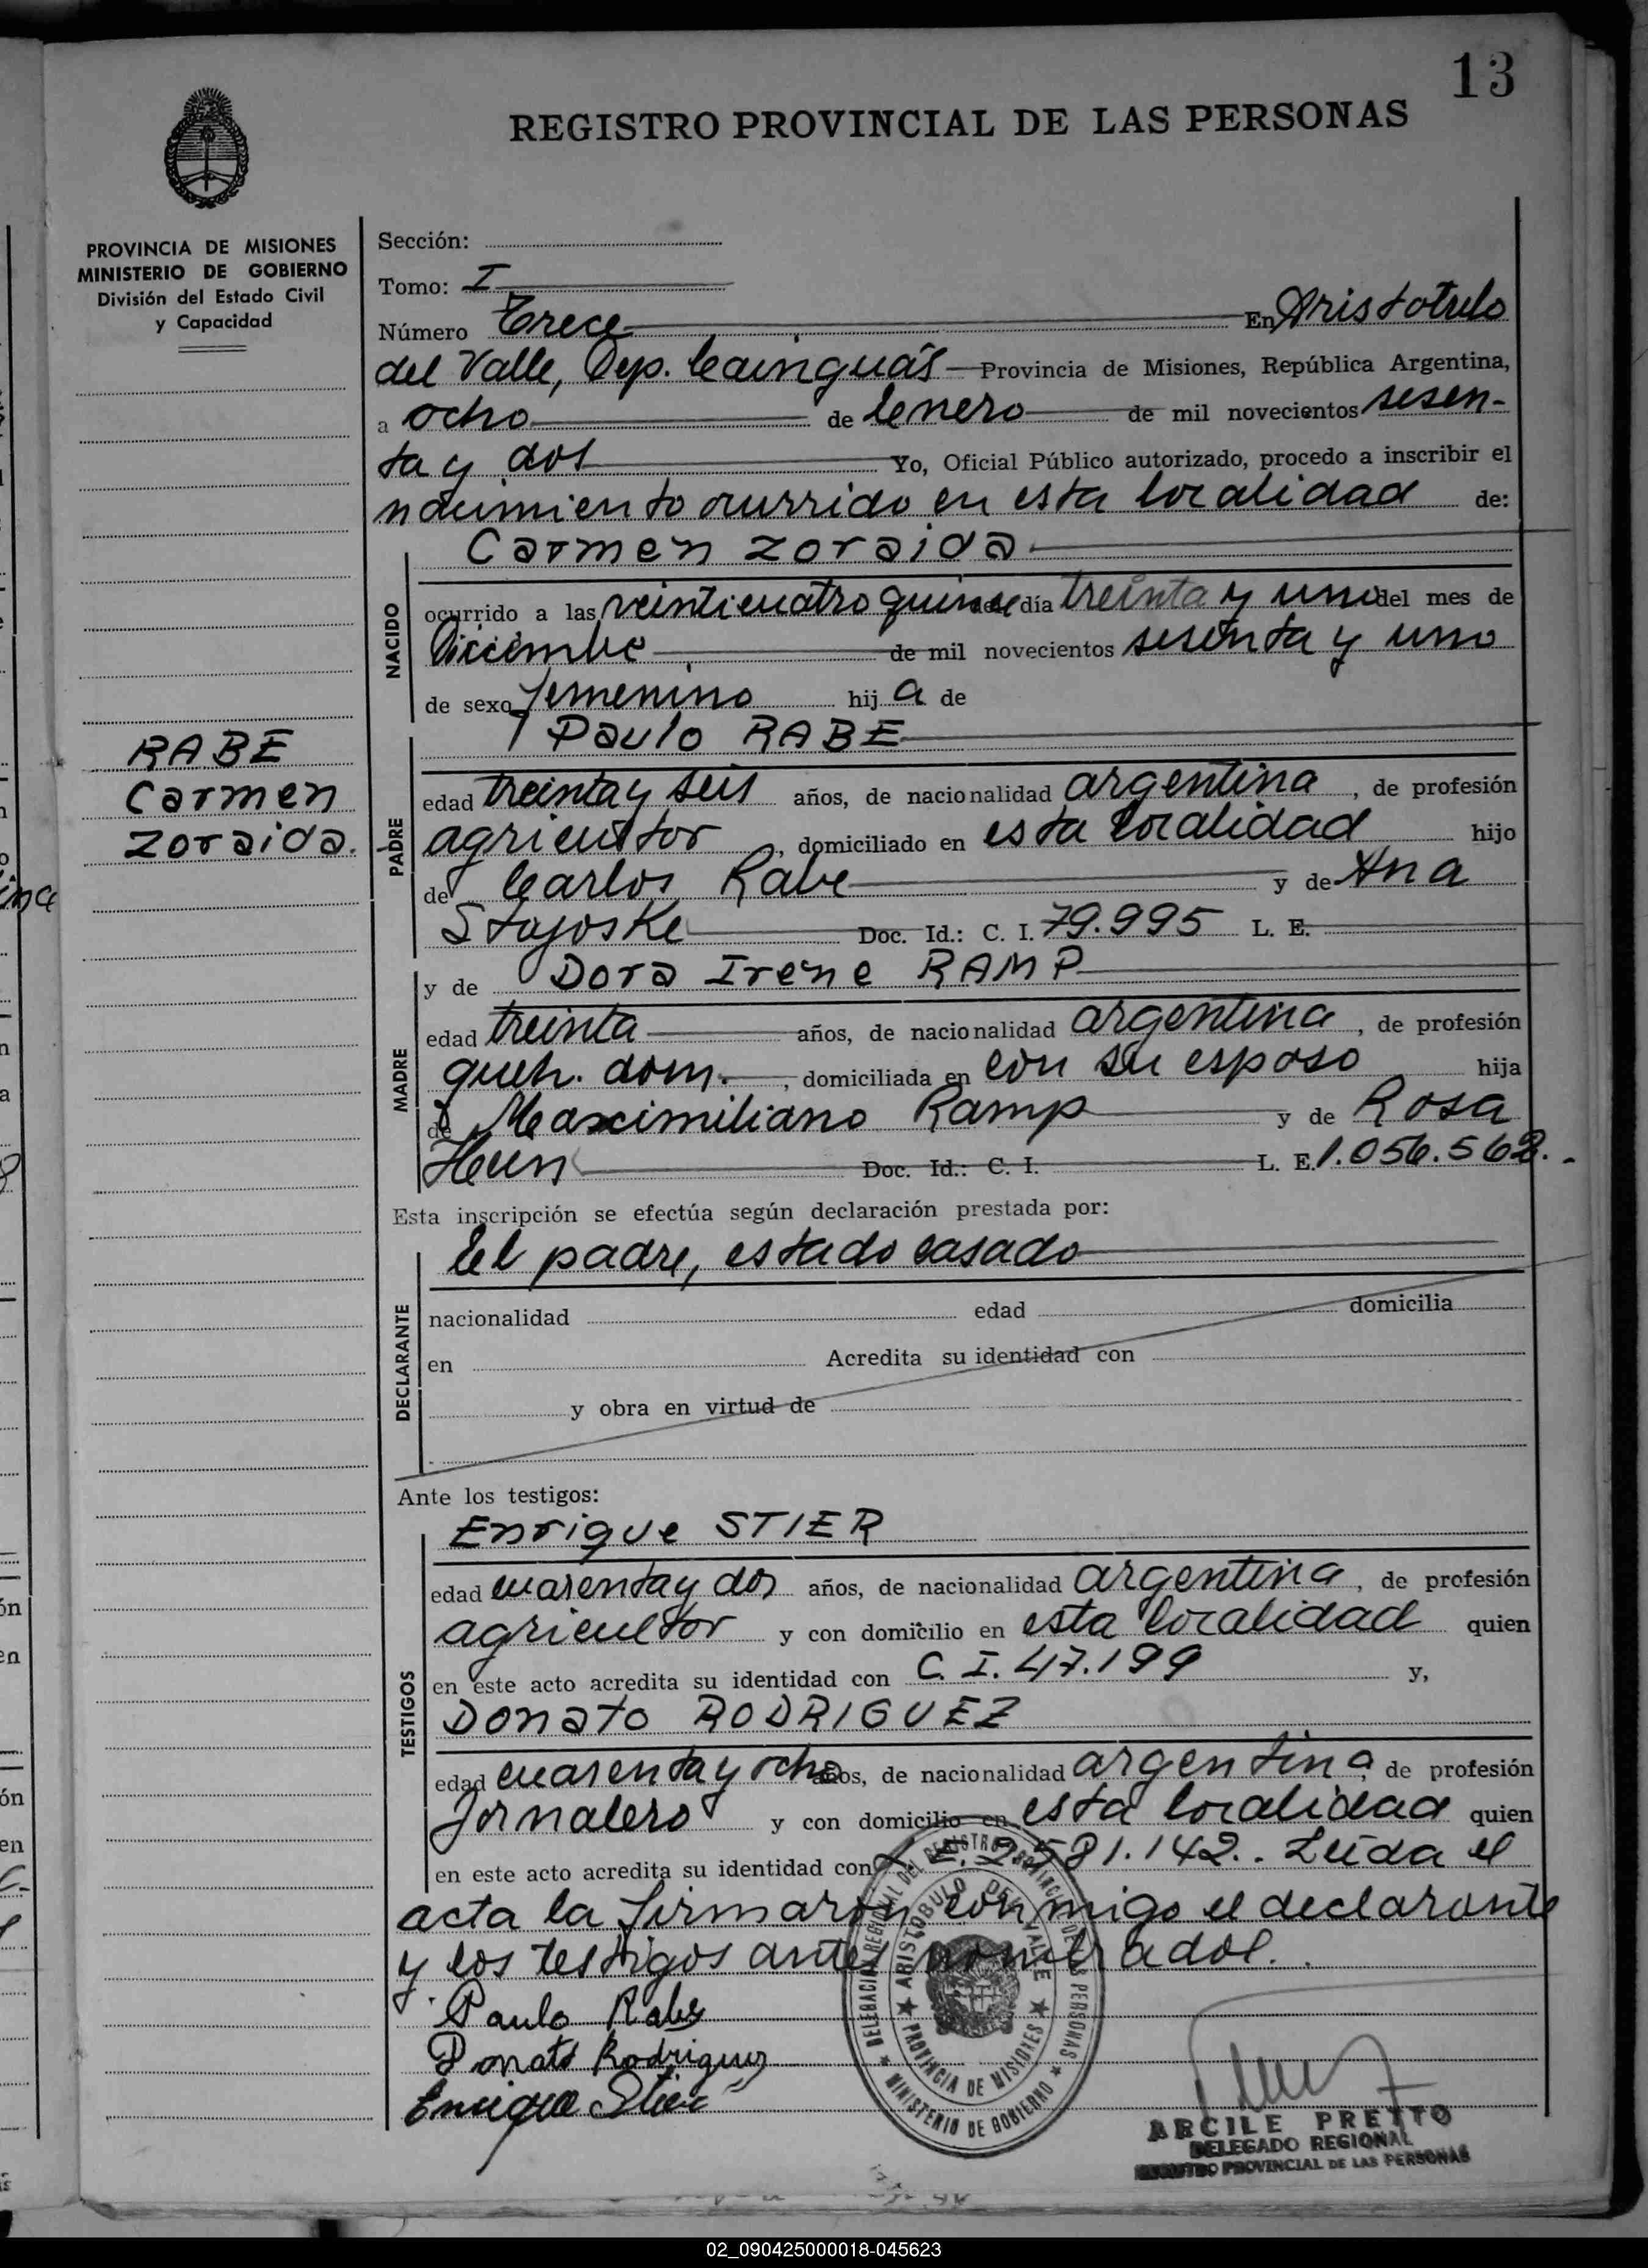 13
REGISTRO PROVINCIAL DE LAS PERSONAS
PROVINCIA DE MISIONES
MINISTERIO DE GOBIERNO
División del Estado Civil
y Capacidad
RABE
Carmen
Zoraida.
Sección:
Tomo: I
Número Trece En Aristobulo
del Valle, Dep. Cainguás Provincia de Misiones, República Argentina,
a ocho de Enero de mil novecientos sesen-
ta y dos Yo, Oficial Público autorizado, procedo a inscribir el
nacimiento ocurrido en esta localidad de:
Carmen Zoraida
NACIDO
ocurrido a las veinticuatro quince del día treinta y uno del mes de
Diciembre de mil novecientos sesenta y uno
de sexo femenino hija de
PADRE
Paulo RABE
edad treinta y seis años, de nacionalidad argentina, de profesión
agricultor, domiciliado en esta localidad hijo
de Carlos Rabe y de Ana
Doc. Id.: C. I. 79.995 L. E.
MADRE
y de Dora Irene RAMP
edad treinta años, de nacionalidad argentina, de profesión
queh. dom., domiciliada en con su esposo hija
de Maximiliano Ramp y de Rosa
Doc. Id.: C. I. L. E. 1.056.562.-
Esta inscripción se efectúa según declaración prestada por:
DECLARANTE
El padre, estado casado
nacionalidad edad domicilia
en Acredita su identidad con
y obra en virtud de
Ante los testigos:
TESTIGOS
Enrique STIER
edad cuarenta y dos años, de nacionalidad argentina, de profesión
agricultor y con domicilio en esta localidad quien
en este acto acredita su identidad con C. I. 47.199 y,
Donato RODRIGUEZ
edad cuarenta y ocho años, de nacionalidad argentina de profesión
Jornalero y con domicilio en esta localidad quien
en este acto acredita su identidad con L. E. 2.581.142.. Leida el
acta la firmaron conmigo el declarante
y los testigos antes nombrados..
Paulo Rabe
Donato Rodriguez
Enrique Stier
DELEGACIÓN REGIONAL DEL REGISTRO PROVINCIAL DE LAS PERSONAS
ARISTOBULO DEL VALLE
PROVINCIA DE MISIONES
MINISTERIO DE GOBIERNO
ARCILE PRETTO
DELEGADO REGIONAL
REGISTRO PROVINCIAL DE LAS PERSONAS
02_090425000018-045623